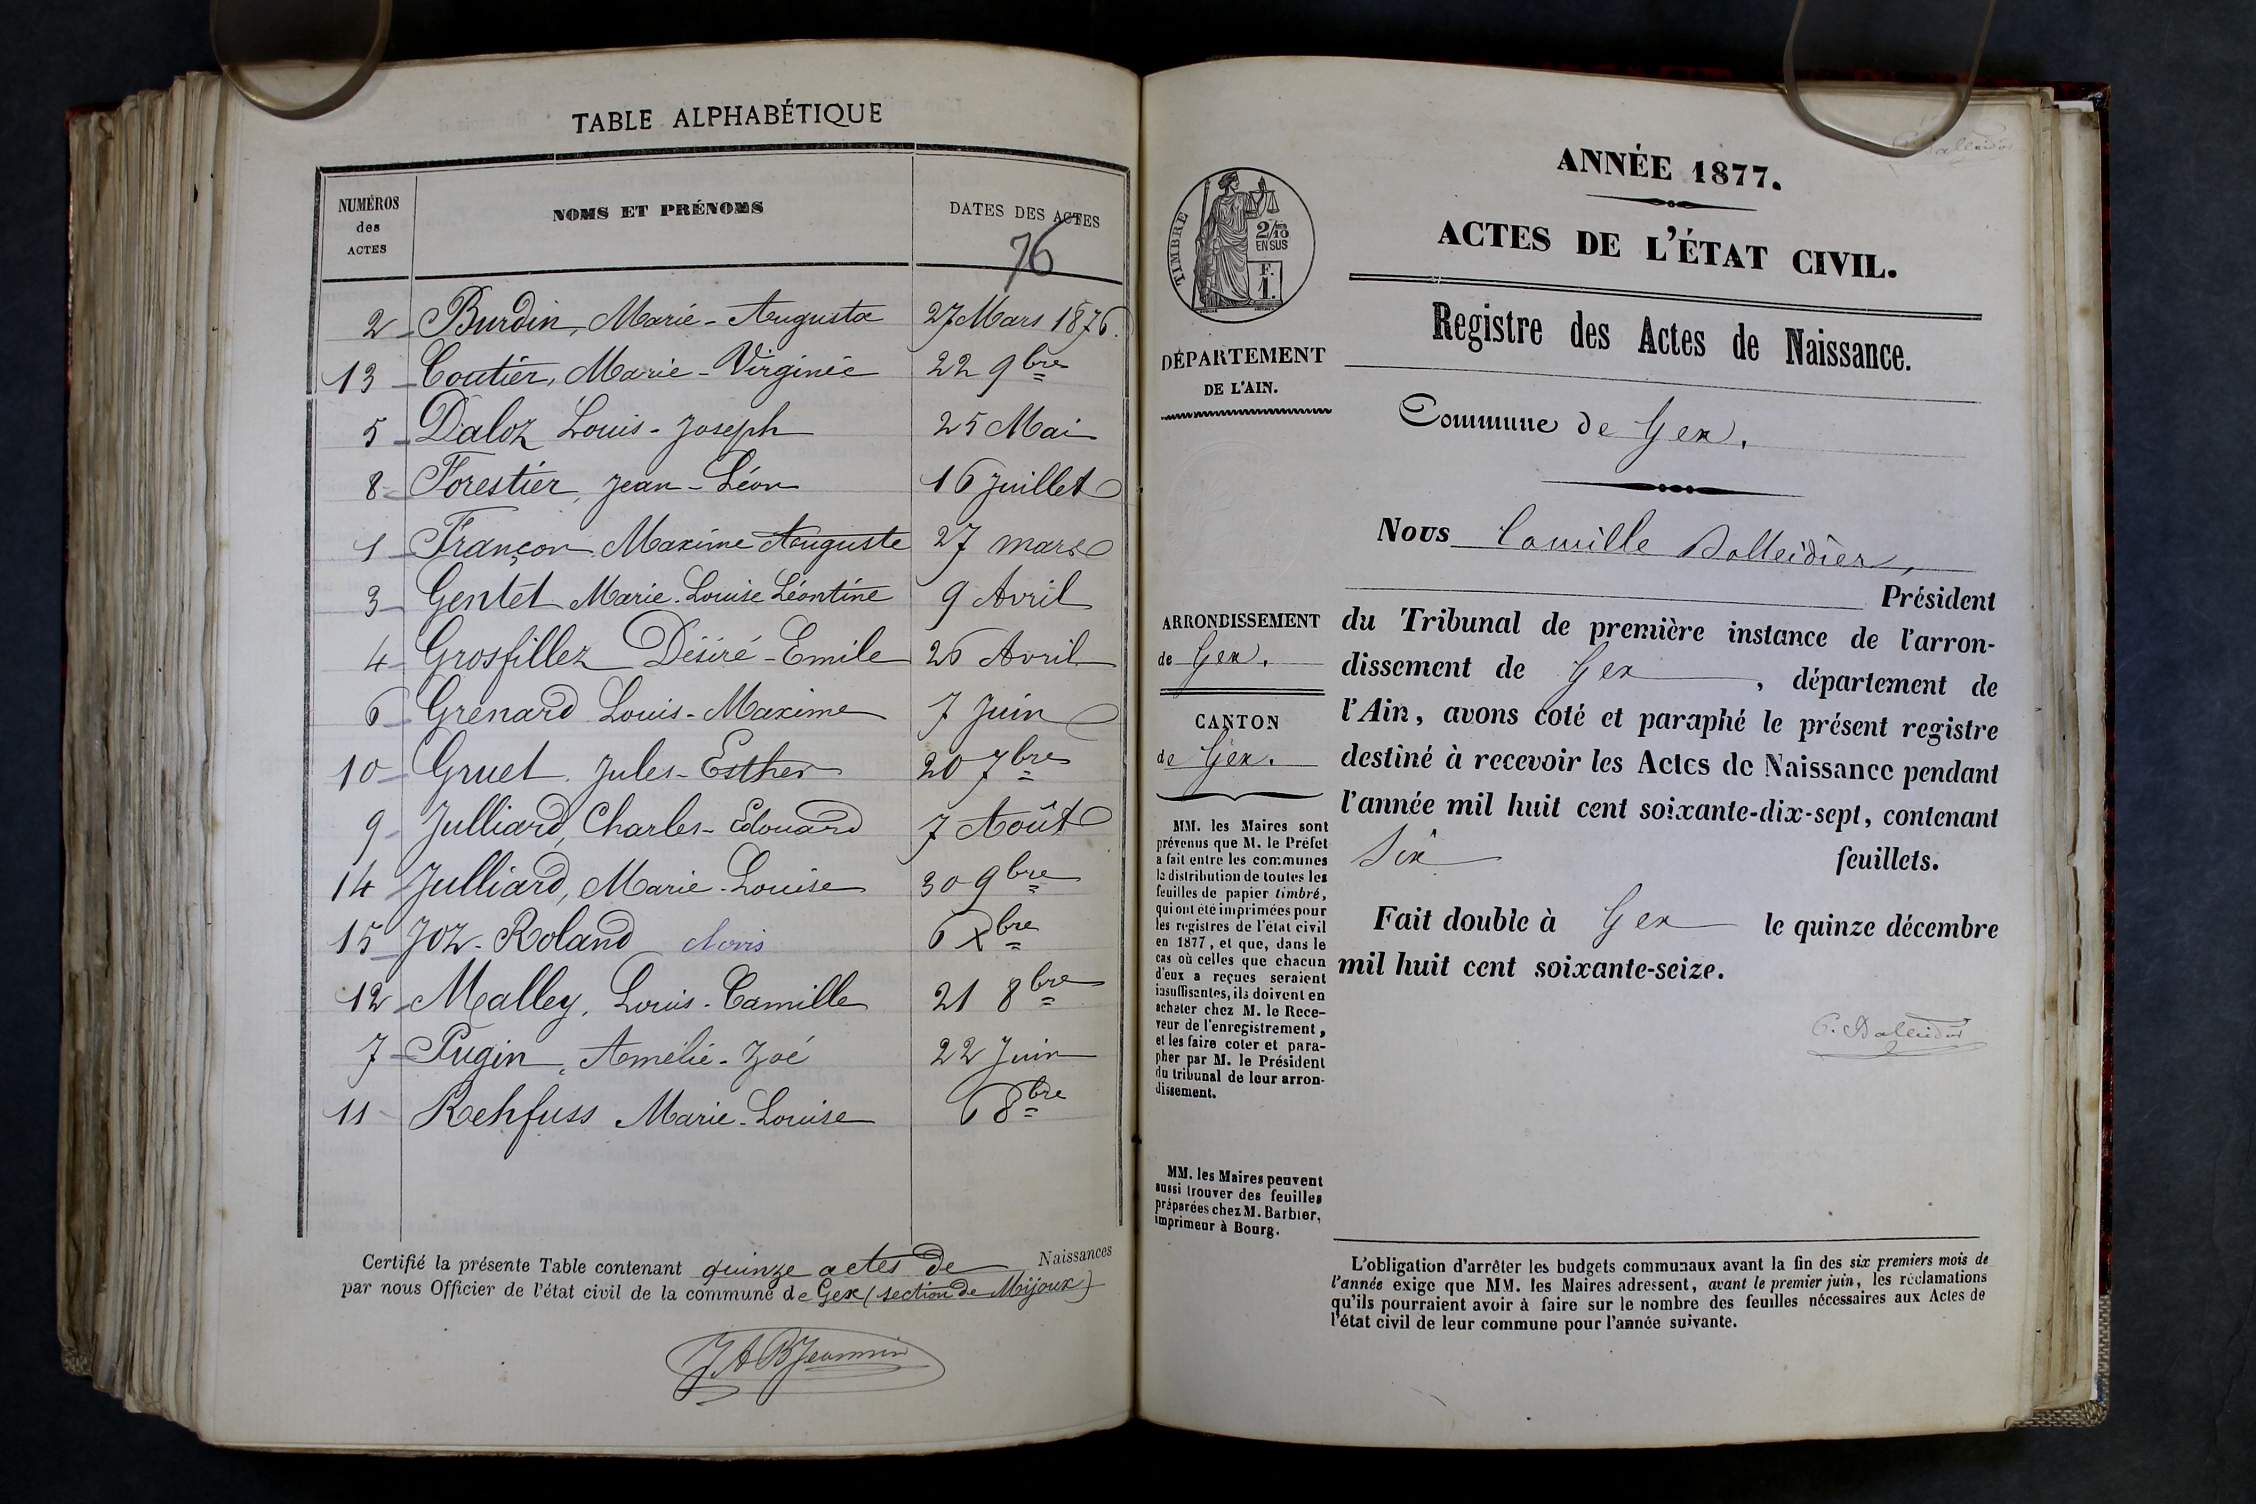 TABLE ALPHABÉTIQUE
NUMÉROS des ACTES
NOMS ET PRÉNOMS
DATES DES ACTES
76
2 Burdin, Marie-Augusta 27 Mars 1876.
13 Coutier, Marie-Virginie 22 9bre
5 Daloz Louis-Joseph 25 Mai
8 Forestier, Jean-Léon 16 Juillet
1 Françon Maxime Auguste 27 mars
3 Gentet Marie-Louise Léontine 9 Avril
4 Grosfillez Désiré-Emile 26 Avril
6 Grenard Louis-Maxime 7 Juin
10 Gruet Jules-Esther 20 7bre
9 Julliard, Charles-Edouard 7 Août
14 Julliard, Marie-Louise 30 9bre
15 Joz-Roland clovis 6 Xbre
12 Malley, Louis-Camille 21 8bre
7 Pugin, Amélie-Zoé 22 Juin
11 Rehfuss Marie-Louise 6 8bre
Certifié la présente Table contenant quinze actes de Naissances
par nous Officier de l'état civil de la commune de Gex (section de Mijoux)
JABJeannin
ANNÉE 1877.
ACTES DE L'ÉTAT CIVIL.
Registre des Actes de Naissance.
TIMBRE
2/10
EN SUS
F.
1.
DÉPARTEMENT
DE L'AIN.
Commune de Gex.
Nous Camille Dalleidier,
Président
du Tribunal de première instance de l'arron-
dissement de Gex, département de
l'Ain, avons coté et paraphé le présent registre
destiné à recevoir les Actes de Naissance pendant
l'année mil huit cent soixante-dix-sept, contenant
Six feuillets.
Fait double à Gex le quinze décembre
mil huit cent soixante-seize.
C. Dalleidier
ARRONDISSEMENT
de Gex.
CANTON
de Gex.
MM. les Maires sont
prévenus que M. le Préfet
a fait entre les communes
la distribution de toutes les
feuilles de papier timbré,
qui ont été imprimées pour
les registres de l'état civil
en 1877, et que, dans le
cas où celles que chacun
d'eux a reçues seraient
insuffisantes, ils doivent en
acheter chez M. le Rece-
veur de l'enregistrement,
et les faire coter et para-
pher par M. le Président
du tribunal de leur arron-
dissement.
MM. les Maires peuvent
aussi trouver des feuilles
préparées chez M. Barbier,
imprimeur à Bourg.
L'obligation d'arrêter les budgets communaux avant la fin des six premiers mois de
l'année exige que MM. les Maires adressent, avant le premier juin, les réclamations
qu'ils pourraient avoir à faire sur le nombre des feuilles nécessaires aux Actes de
l'état civil de leur commune pour l'année suivante.